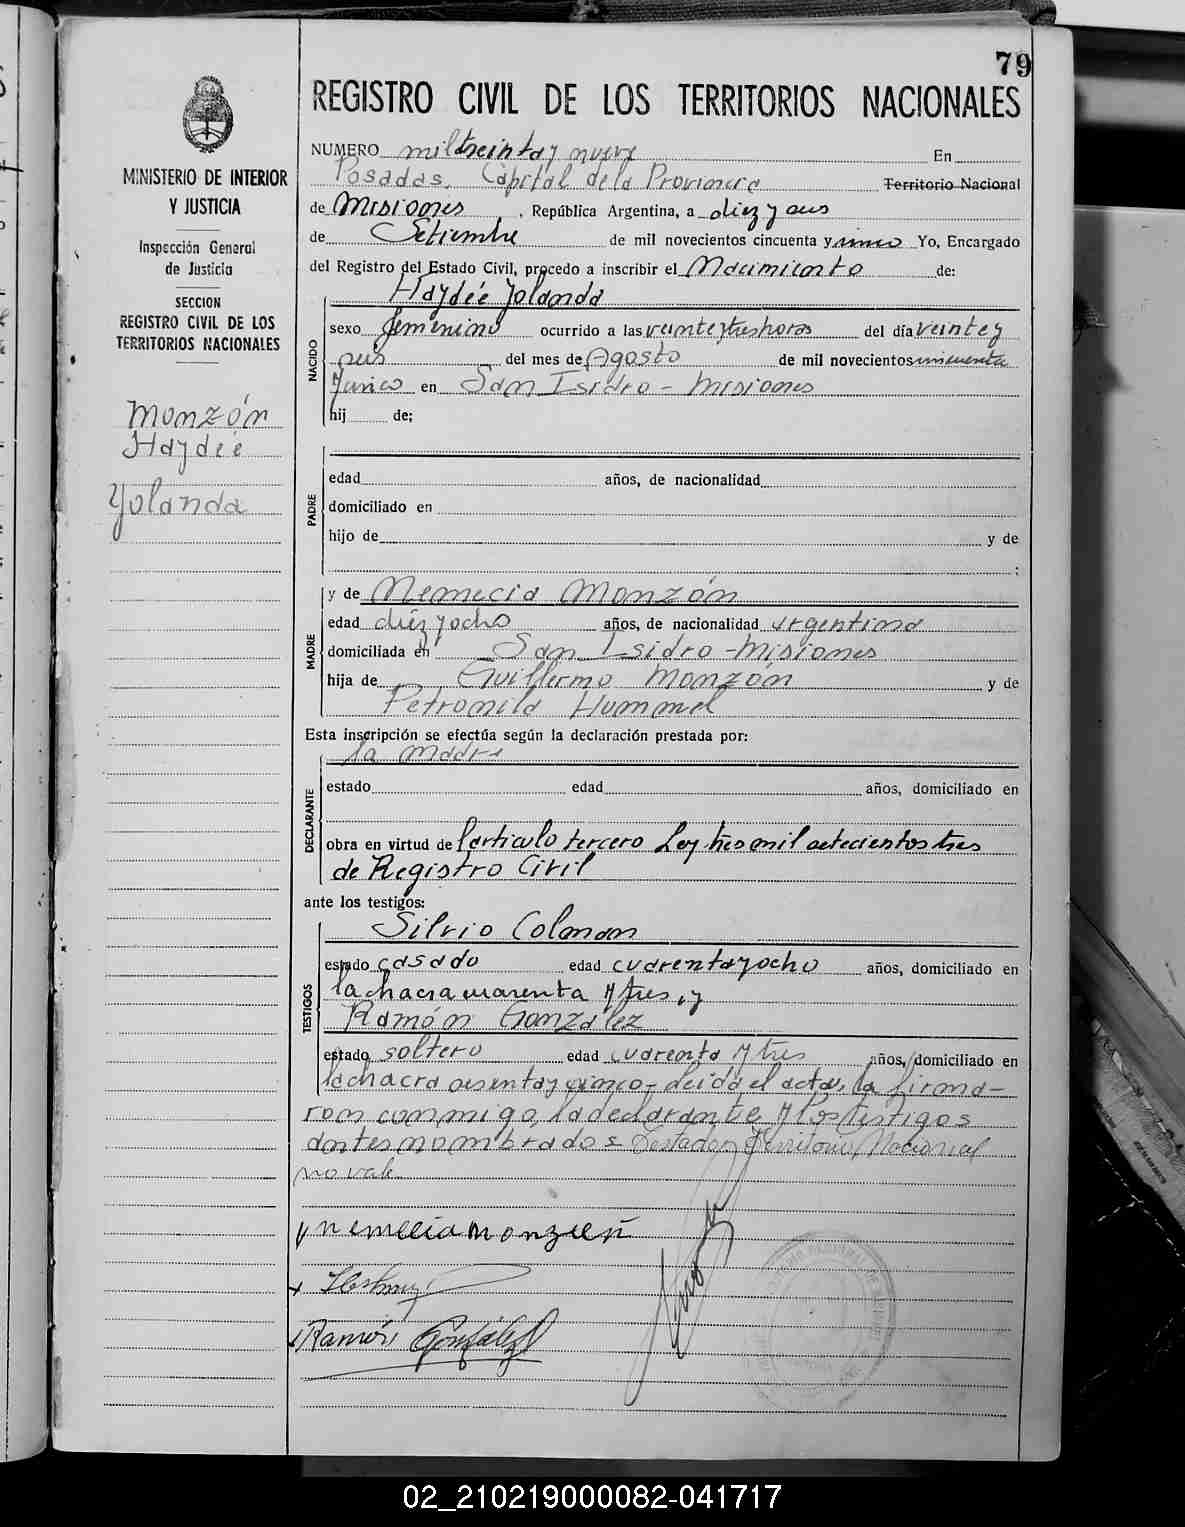 79
REGISTRO CIVIL DE LOS TERRITORIOS NACIONALES
MINISTERIO DE INTERIOR
Y JUSTICIA
Inspección General
de Justicia
SECCION
REGISTRO CIVIL DE LOS
TERRITORIOS NACIONALES
Monzón
Haydée
Yolanda
NUMERO mil treinta y nueve En
Posadas, Capital de la Provincia Territorio Nacional
de Misiones, República Argentina, a diez y seis
de Setiembre de mil novecientos cincuenta y cinco Yo, Encargado
del Registro del Estado Civil, procedo a inscribir el Nacimiento de:
Haydée Yolanda
NACIDO
sexo femenino ocurrido a las veinte y tres horas del día veinte y
seis del mes de Agosto de mil novecientos cincuenta
y cinco en San Isidro - Misiones
hij de;
PADRE
edad años, de nacionalidad
domiciliado en
hijo de y de
;
MADRE
y de Nemecia Monzón
edad diez y ocho años, de nacionalidad argentina
domiciliada en San Isidro - Misiones
hija de Guillermo Monzón y de
Petronila Hummel
Esta inscripción se efectúa según la declaración prestada por:
la madre
DECLARANTE
estado edad años, domiciliado en
obra en virtud de l artículo tercero Ley tres mil setecientos tres
de Registro Civil
ante los testigos:
Silvio Colman
TESTIGOS
estado casado edad cuarenta y ocho años, domiciliado en
la chacra cuarenta y tres, y
Ramón González
estado soltero edad cuarenta y tres años, domiciliado en
la chacra sesenta y cinco - leída el acta, la firma-
ron conmigo, la declarante y los testigos
antes nombrados Testado: Territorio Nacional
no vale
Nemecia Monzón
Ramón González
02_210219000082-041717